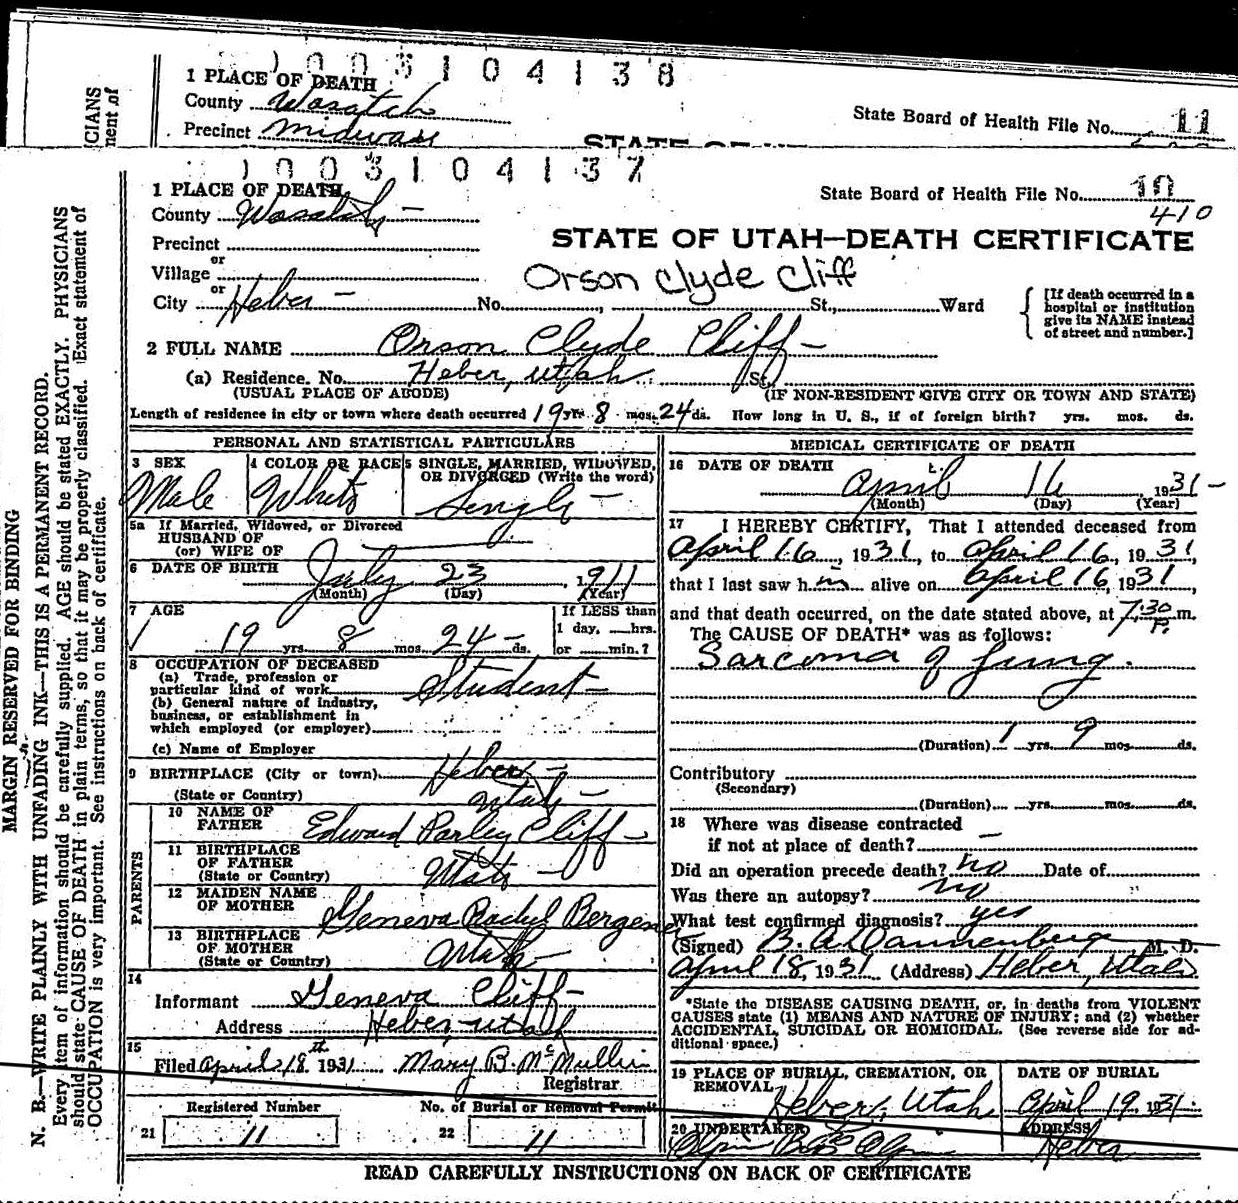 1 0 0 3 1 0 4 1 3 8
1 PLACE OF DEATH
County Wasatch
Precinct Midway
State Board of Health File No. 11
CIANS
ment of
1 0 0 3 1 0 4 1 3 7
1 PLACE OF DEATH
County Wasatch
State Board of Health File No. 10
410
Precinct
or
STATE OF UTAH—DEATH CERTIFICATE
Village
or
Orson Clyde Cliff
City Heber No. St., Ward
[If death occurred in a
hospital or institution
give its NAME instead
of street and number.]
2 FULL NAME Orson Clyde Cliff
(a) Residence. No. Heber, Utah St.
(USUAL PLACE OF ABODE) (IF NON-RESIDENT GIVE CITY OR TOWN AND STATE)
Length of residence in city or town where death occurred 19 yrs. 8 mos. 24 ds. How long in U. S., if of foreign birth? yrs. mos. ds.
PERSONAL AND STATISTICAL PARTICULARS
3 SEX
Male
4 COLOR OR RACE
White
5 SINGLE, MARRIED, WIDOWED,
OR DIVORCED (Write the word)
Single
5a If Married, Widowed, or Divorced
HUSBAND OF
(or) WIFE OF
6 DATE OF BIRTH July 23, 1911
(Month) (Day) (Year)
7 AGE
19 yrs. 8 mos. 24 ds.
If LESS than
1 day, hrs.
or min.?
8 OCCUPATION OF DECEASED
(a) Trade, profession or
particular kind of work Student
(b) General nature of industry,
business, or establishment in
which employed (or employer)
(c) Name of Employer
9 BIRTHPLACE (City or town) Heber
(State or Country) Utah
PARENTS
10 NAME OF
FATHER Edward Parley Cliff
11 BIRTHPLACE
OF FATHER
(State or Country) Utah
12 MAIDEN NAME
OF MOTHER Geneva Rachel Bergener
13 BIRTHPLACE
OF MOTHER
(State or Country) Utah
14
Informant Geneva Cliff
Address Heber, Utah
15
Filed April 18th 1931 Mary B. McMullin
Registrar
Registered Number
21 11
No. of Burial or Removal Permit
22 11
MEDICAL CERTIFICATE OF DEATH
16 DATE OF DEATH
April 16 1931
(Month) (Day) (Year)
17 I HEREBY CERTIFY, That I attended deceased from
April 16, 1931, to April 16, 1931,
that I last saw him alive on April 16, 1931
and that death occurred, on the date stated above, at 7:30 P. m.
The CAUSE OF DEATH* was as follows:
Sarcoma of Lung.
(Duration) 1 yrs. 9 mos. ds.
Contributory
(Secondary)
(Duration) yrs. mos. ds.
18 Where was disease contracted
if not at place of death?
Did an operation precede death? no Date of
Was there an autopsy? no
What test confirmed diagnosis? yes
(Signed) B. A. Dannenberg M. D.
April 18, 1931 (Address) Heber, Utah
*State the DISEASE CAUSING DEATH, or, in deaths from VIOLENT
CAUSES state (1) MEANS AND NATURE OF INJURY; and (2) whether
ACCIDENTAL, SUICIDAL OR HOMICIDAL. (See reverse side for ad-
ditional space.)
19 PLACE OF BURIAL, CREMATION, OR
REMOVAL
Heber, Utah
DATE OF BURIAL
April 19 1931
20 UNDERTAKER
ADDRESS
Heber
READ CAREFULLY INSTRUCTIONS ON BACK OF CERTIFICATE
MARGIN RESERVED FOR BINDING
N. B.—WRITE PLAINLY WITH UNFADING INK—THIS IS A PERMANENT RECORD.
Every item of information should be carefully supplied. AGE should be stated EXACTLY. PHYSICIANS
should state CAUSE OF DEATH in plain terms, so that it may be properly classified. Exact statement of
OCCUPATION is very important. See instructions on back of certificate.